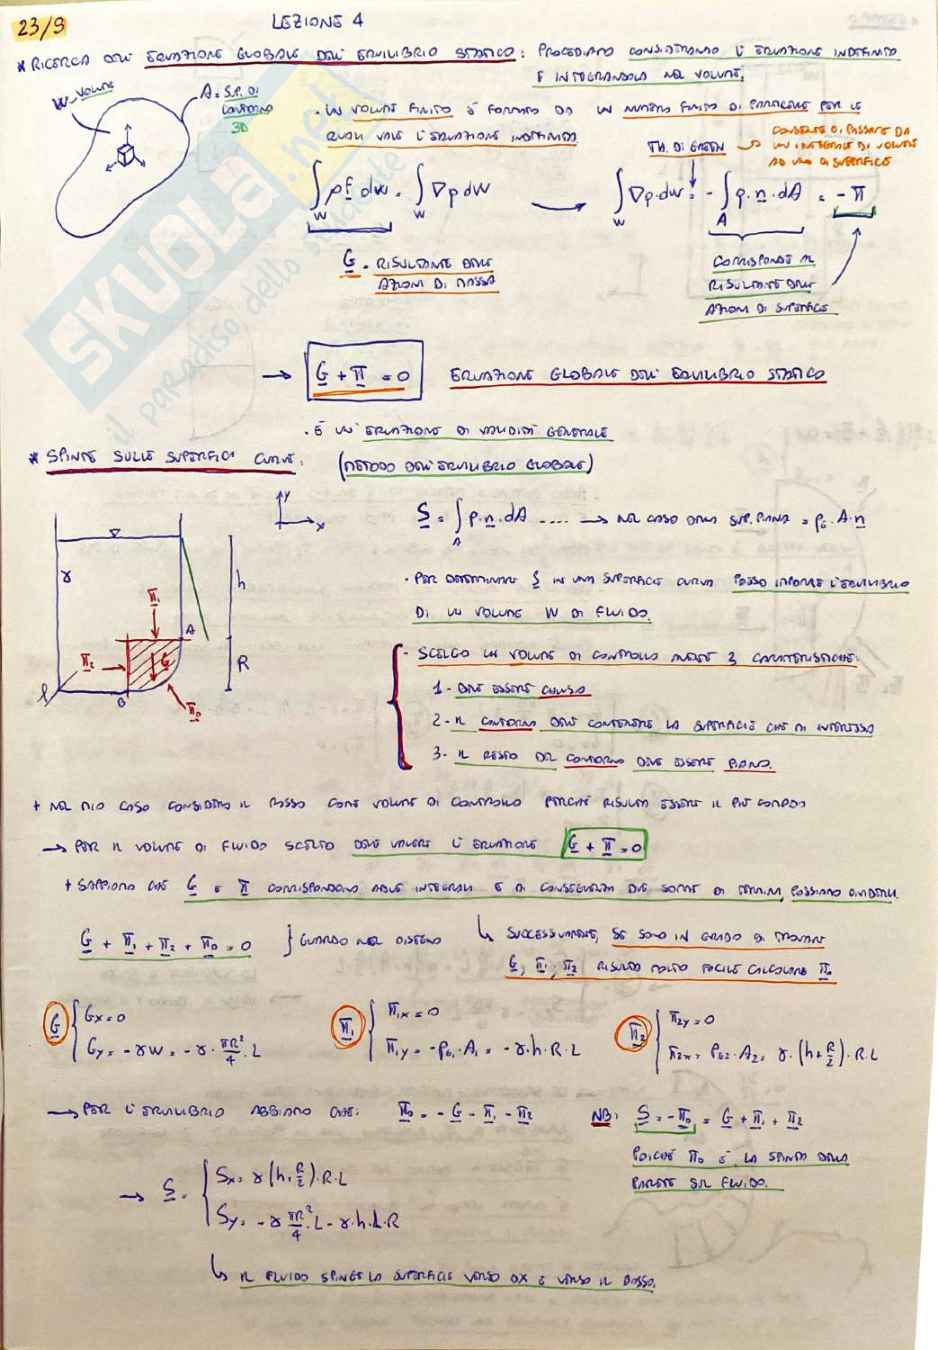 23/9
LEZIONE 4
* RICERCA DELL' EQUAZIONE GLOBALE DELL' EQUILIBRIO STATICO: PROCEDIAMO CONSIDERANDO L'EQUAZIONE INDEFINITA
E INTEGRANDOLA NEL VOLUME.
W = VOLUME
A = SUP. DI
CONTORNO
3D
· UN VOLUME FINITO È FORMATO DA UN NUMERO FINITO DI PARTICELLE PER LE
QUALI VALE L'EQUAZIONE INDEFINITA
TH. DI GREEN → CONSENTE DI PASSARE DA
UN INTEGRALE DI VOLUME
AD UNO DI SUPERFICIE
∫_W ρ f dW = ∫_W ∇p dW → ∫_W ∇p·dW = -∫_A p·n·dA = -Π
G = RISULTANTE DELLE
AZIONI DI MASSA
CORRISPONDE AL
RISULTANTE DELLE
AZIONI DI SUPERFICIE
→ G + Π = 0 EQUAZIONE GLOBALE DELL' EQUILIBRIO STATICO
· È UN' EQUAZIONE DI VALIDITÀ GENERALE
* SPINTE SULLE SUPERFICI CURVE: (METODO DELL'EQUILIBRIO GLOBALE)
y
x
γ
h
Π1
A
Π2
G
R
B
Π0
S = ∫_A p·n·dA .... → NEL CASO DELLA SUP. PIANA = pG·A·n
· PER DETERMINARE S IN UNA SUPERFICIE CURVA POSSO IMPORRE L'EQUILIBRIO
DI UN VOLUME W DI FLUIDO.
- SCELGO UN VOLUME DI CONTROLLO AVENTE 3 CARATTERISTICHE:
1 - DEVE ESSERE CHIUSO
2 - IL CONTORNO DEVE CONTENERE LA SUPERFICIE CHE MI INTERESSA
3 - IL RESTO DEL CONTORNO DEVE ESSERE PIANO.
+ NEL MIO CASO CONSIDERO IL ROSSO COME VOLUME DI CONTROLLO PERCHÉ RISULTA ESSERE IL PIÙ COMODO
→ PER IL VOLUME DI FLUIDO SCELTO DEVE VALERE L'EQUAZIONE G + Π = 0
+ SAPPIAMO CHE G E Π CORRISPONDONO AGLI INTEGRALI E DI CONSEGUENZA ALLE SOMME DI TERMINI, POSSIAMO DIVIDERLI.
G + Π1 + Π2 + Π0 = 0 } GUARDO NEL DISEGNO
↳ SUCCESSIVAMENTE, SE SONO IN GRADO DI TROVARE
G, Π1, Π2 RISULTA MOLTO FACILE CALCOLARE Π0
G { Gx = 0
Gy = -γW = -γ·πR²/4·L
Π1 { Π1x = 0
Π1y = -pG1·A1 = -γ·h·R·L
Π2 { Π2y = 0
Π2x = pG2·A2 = γ·(h+R/2)·R·L
→ PER L'EQUILIBRIO ABBIAMO CHE: Π0 = -G - Π1 - Π2
NB: S = -Π0 = G + Π1 + Π2
POICHÉ Π0 È LA SPINTA DELLA
PARETE SUL FLUIDO.
→ S = { Sx = γ(h+R/2)·R·L
Sy = -γ πR²/4·L - γ·h·L·R
↳ IL FLUIDO SPINGE LA SUPERFICIE VERSO DX E VERSO IL BASSO.
SKUOLA.net
il paradiso dello studente